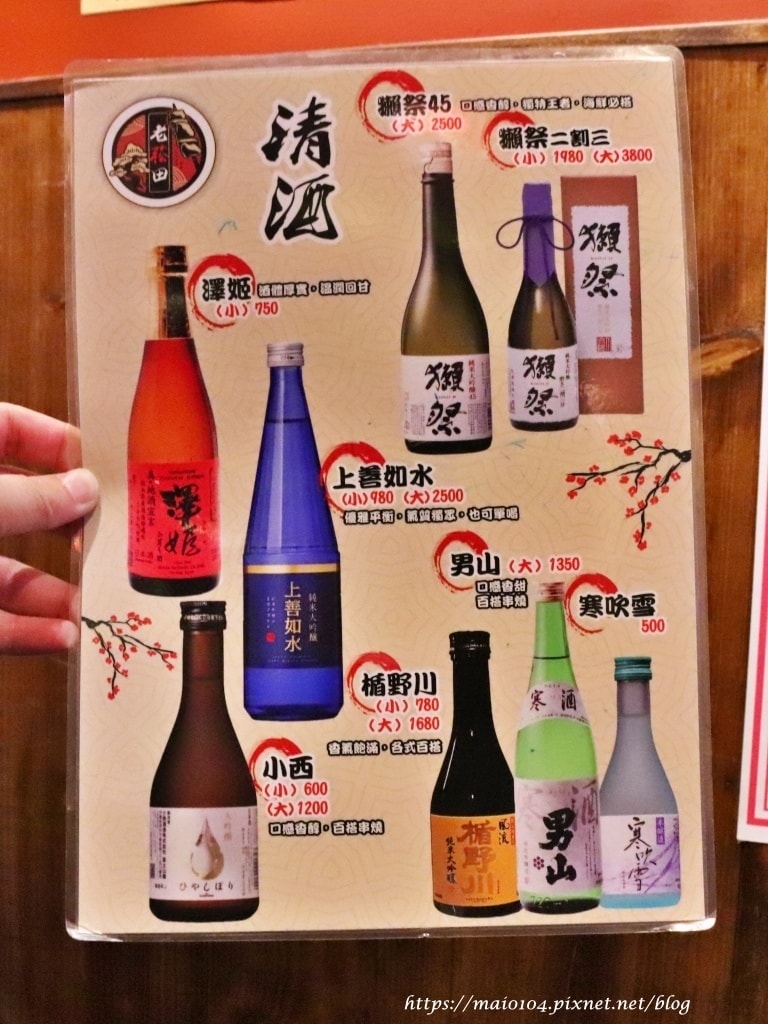 老松田
清酒
獺祭45 口感香醇，獨特王者，海鮮必搭
(大) 2500
獺祭二割三
(小) 1980 (大) 3800
獺祭
澤姬 酒體厚實，溫潤回甘
(小) 750
純米大吟醸45
獺祭
純米大吟醸
獺祭
澤姫
上善如水
(小) 980 (大) 2500
優雅平衡，氣質獨眾，也可單喝
純米大吟醸
上善如水
男山 (大) 1350
口感香甜
百搭串燒
寒吹雪
500
楯野川
(小) 780
(大) 1680
香氣飽滿，各式百搭
小西
(小) 600
(大) 1200
口感香醇，百搭串燒
大吟醸
ひやしぼり
楯野川
純米大吟醸
寒酒
男山
本醸造
寒吹雪
https://maio104.pixnet.net/blog